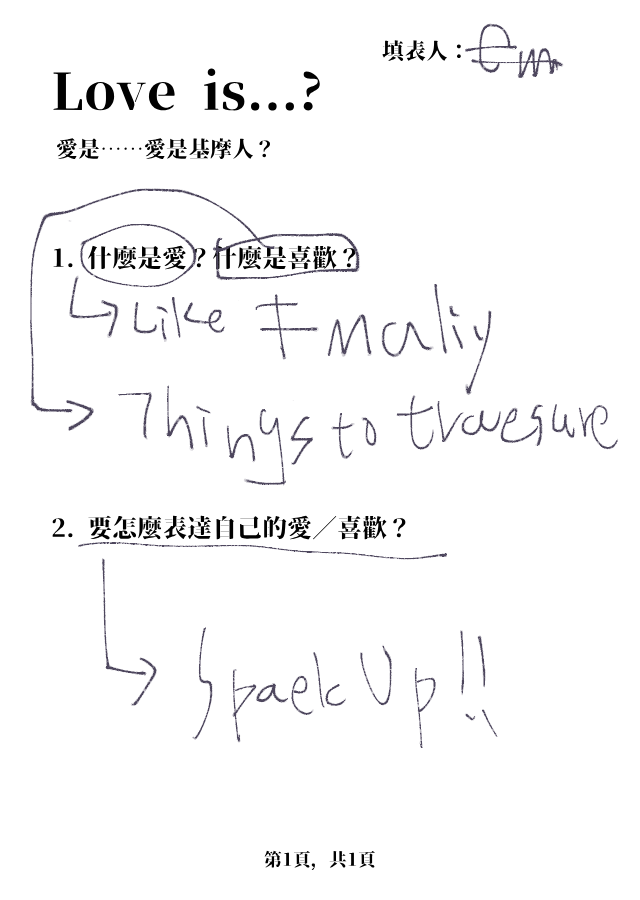 填表人：Em
Love is...?
愛是……愛是基摩人？
1. 什麼是愛？什麼是喜歡？
Like Fmaliy
Things to traesure
2. 要怎麼表達自己的愛／喜歡？
Spaek Up!!
第1頁，共1頁